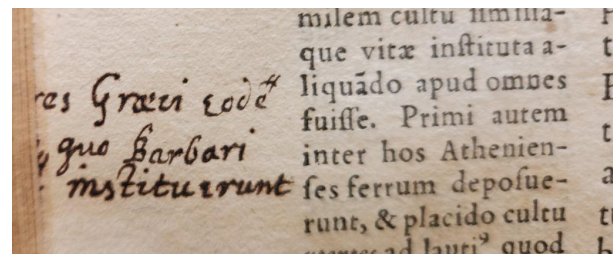 Græci eodē
quo Barbari
instituerunt
milem cultu simília-
que vitæ inſtituta a-
liquādo apud omnes
fuiſſe. Primi autem
inter hos Athenien-
ſes ferrum depoſue-
runt, & placido cultu
ad lauti⁹ quod